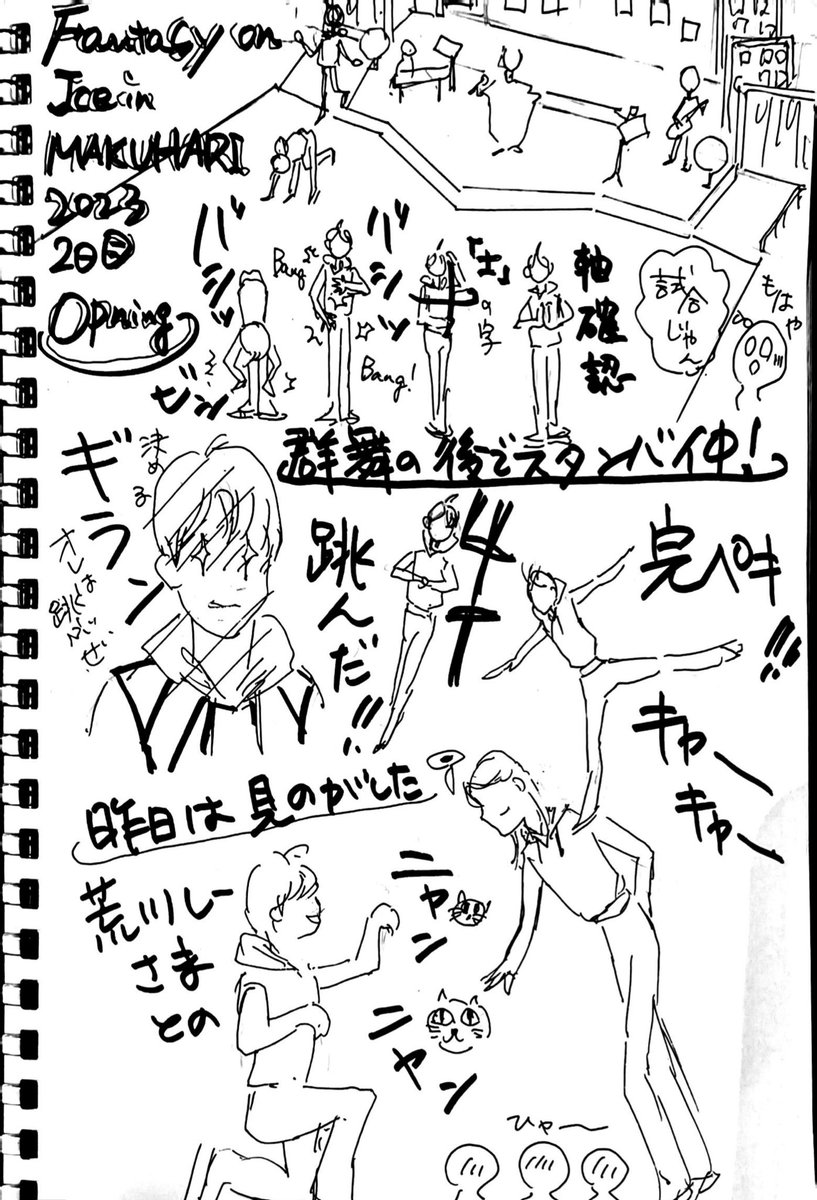 Fantasy on
Ice in
MAKUHARI
2023
2日目
Opning
バシッ
ビシ
Bang
バシッ
Bang!
「士」
の字
軸確認
試合じゃん
もはや
群舞の後でスタンバイ中!
決める
ギラン
オレは
跳ぶぜい
跳んだ!!
4T
完ペキ!!
キャー
キャー
昨日は見のがした
荒川しー
さま
との
ニャン
ニャン
ひゃー